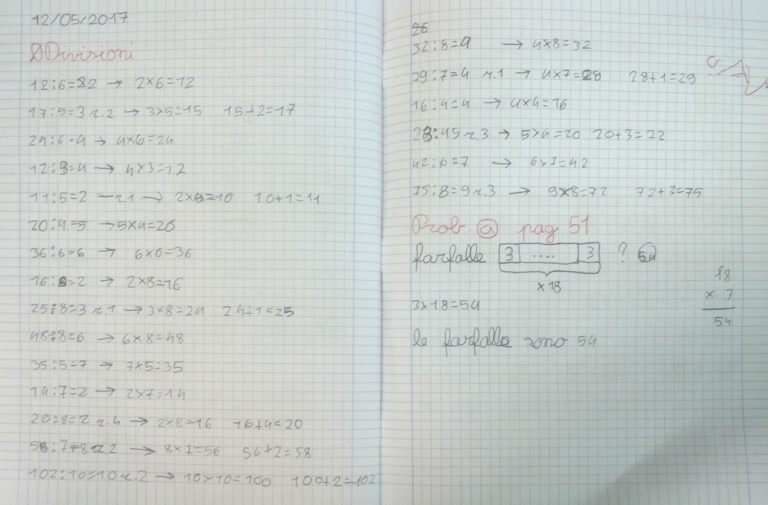 12/05/2017
Divisioni
12:6=2 → 2×6=12
17:5=3 r.2 → 3×5=15 15+2=17
24:6=4 → 4×6=24
12:3=4 → 4×3=12
11:5=2 r.1 → 2×5=10 10+1=11
20:4=5 → 5×4=20
36:6=6 → 6×6=36
16:8=2 → 2×8=16
25:8=3 r.1 → 3×8=24 24+1=25
48:8=6 → 6×8=48
35:5=7 → 7×5=35
14:7=2 → 2×7=14
20:8=2 r.4 → 2×8=16 16+4=20
58:7=8 r.2 → 8×7=56 56+2=58
102:10=10 r.2 → 10×10=100 100+2=102
26
32:8=4 → 4×8=32
29:7=4 r.1 → 4×7=28 28+1=29
16:4=4 → 4×4=16
23:4 5 r.3 → 5×4=20 20+3=22
42:6=7 → 6×7=42
75:8=9 r.3 → 9×8=72 72+3=75
Prob. a pag. 51
farfalle 3 .... 3 ? 54
×18
3×18=54
18
× 3
54
le farfalle sono 54